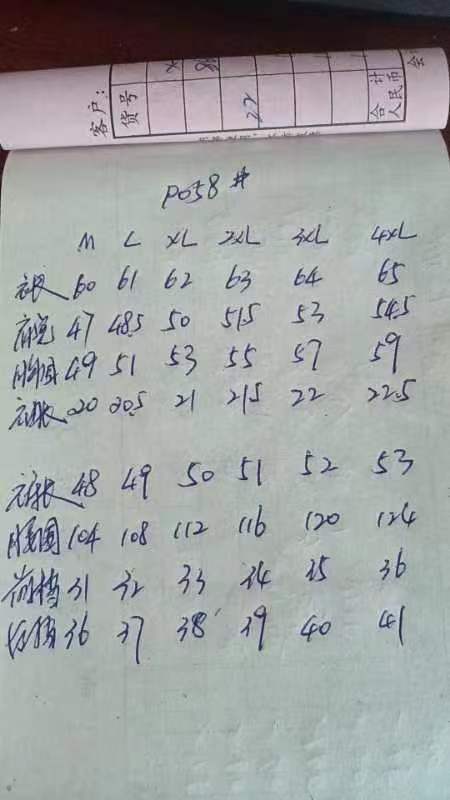 客户：
货号
合计
人民币
P058#
M L XL 2XL 3XL 4XL
衣长 60 61 62 63 64 65
肩宽 47 48.5 50 51.5 53 54.5
胸围 49 51 53 55 57 59
20 20.5 21 21.5 22 22.5
48 49 50 51 52 53
围 104 108 112 116 120 124
前档 31 32 33 34 35 36
后档 36 37 38 39 40 41